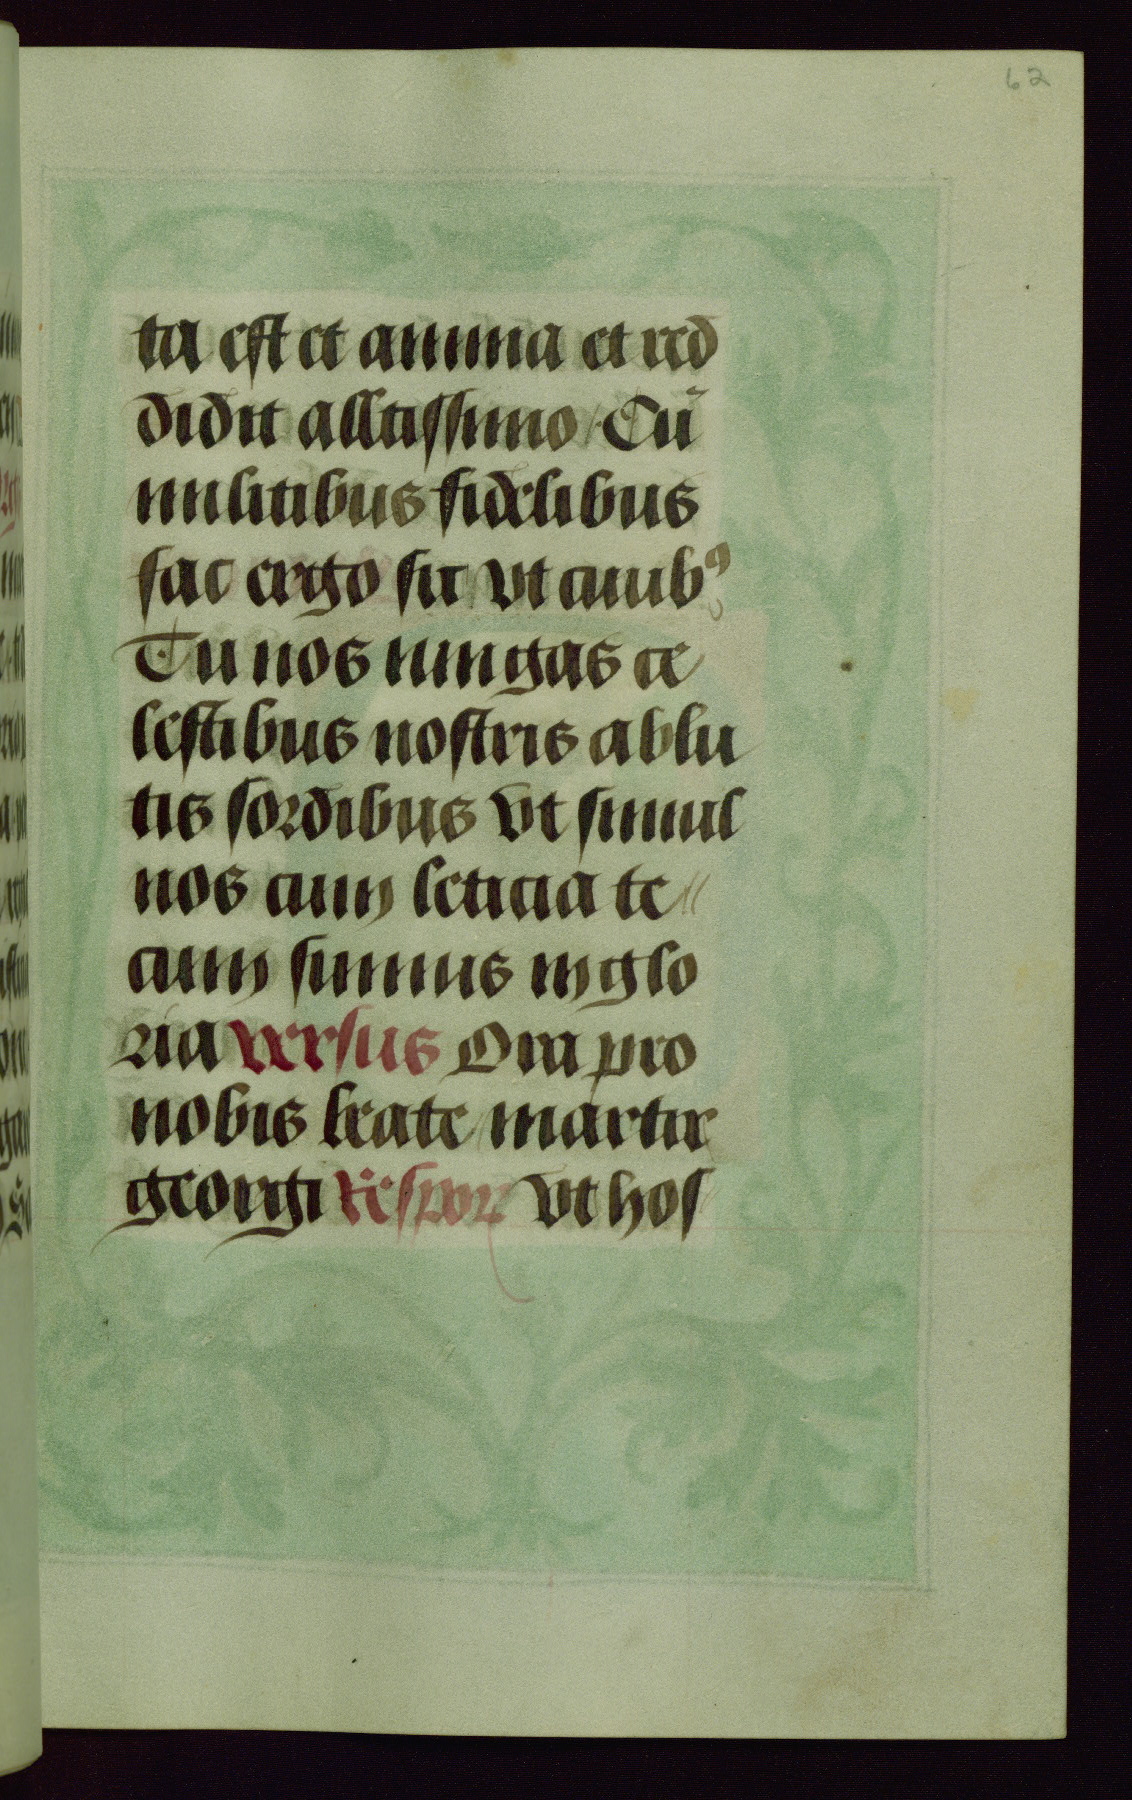 62
ta est et anima et red
didit alltissimo / Cū
militibus fidelibus
fac ergo sit vt ciuibꝰ
Tu nos iungas ce
lestibus nostris ablu
tis sordibus Vt simul
nos cum leticia te
cum simus in glo
ria versus Ora pro
nobis beate martir
georgi Respoꝝ Vt hos